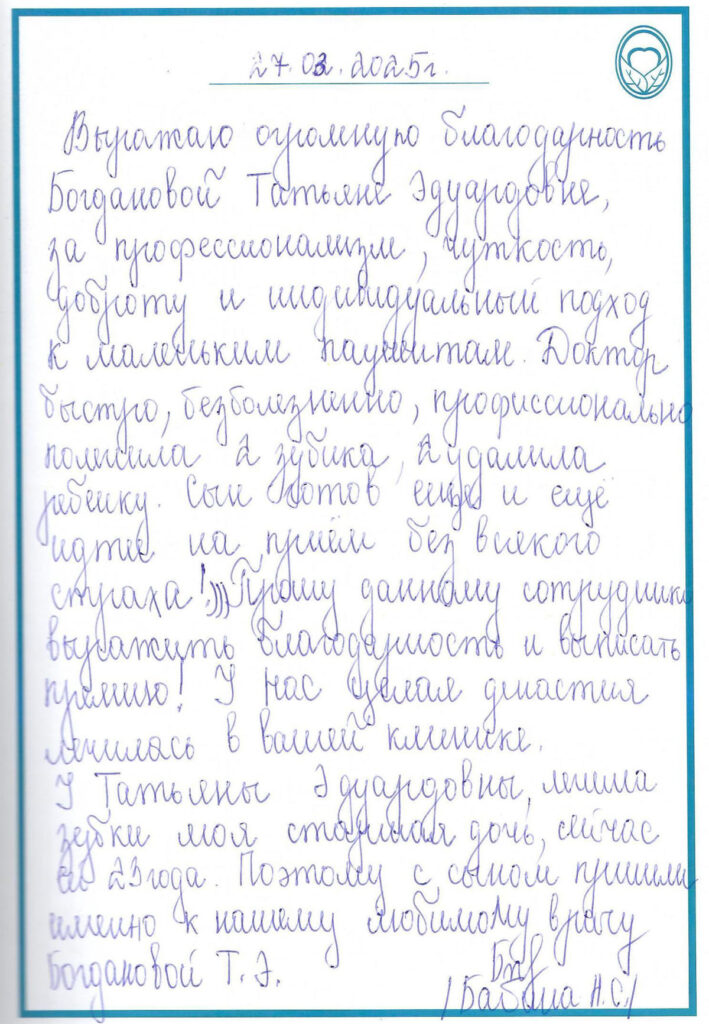 27.03.2025г.
Выражаю огромную благодарность
Богдановой Татьяне Эдуардовне,
за профессионализм, чуткость,
доброту и индивидуальный подход
к маленьким пациентам. Доктор
быстро, безболезненно, профиссионально
полечила 2 зубика, 2 удалила
ребенку. Сын готов ещё и ещё
идти на приём без всякого
страха!)))Прошу данному сотруднику
выражить благодарность и выписать
премию! У нас целая династия
лечилась в вашей клинике.
У Татьяны Эдуардовны, лечила
зубки моя старшая дочь, сейчас
ей 23 года. Поэтому с сыном пришли
именно к нашему любимому врачу
Богдановой Т.Э.
/ Н.С./